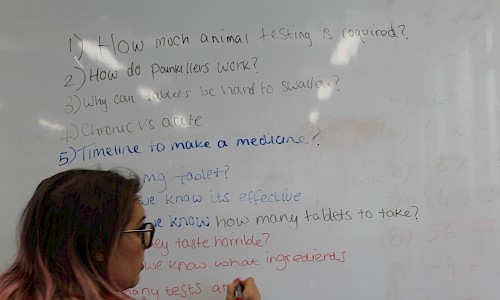 1) How much animal testing is required?
2) How do painkillers work?
3) Why can tablets be hard to swallow?
4) Chronic vs acute
5) Timeline to make a medicine?
tablet?
we know its effective
we know how many tablets to take?
taste horrible?
we know what ingredients
many tests